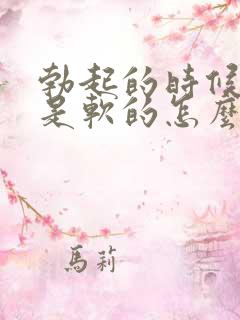 勃起的時候
是軟的怎麼
馬莉